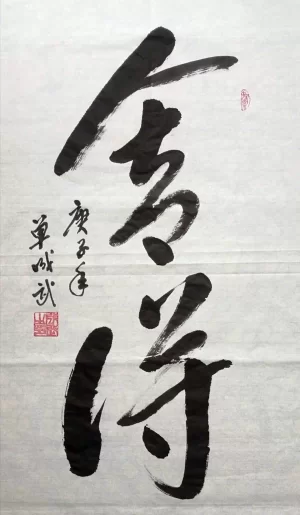 舍得
庚子年
单成武